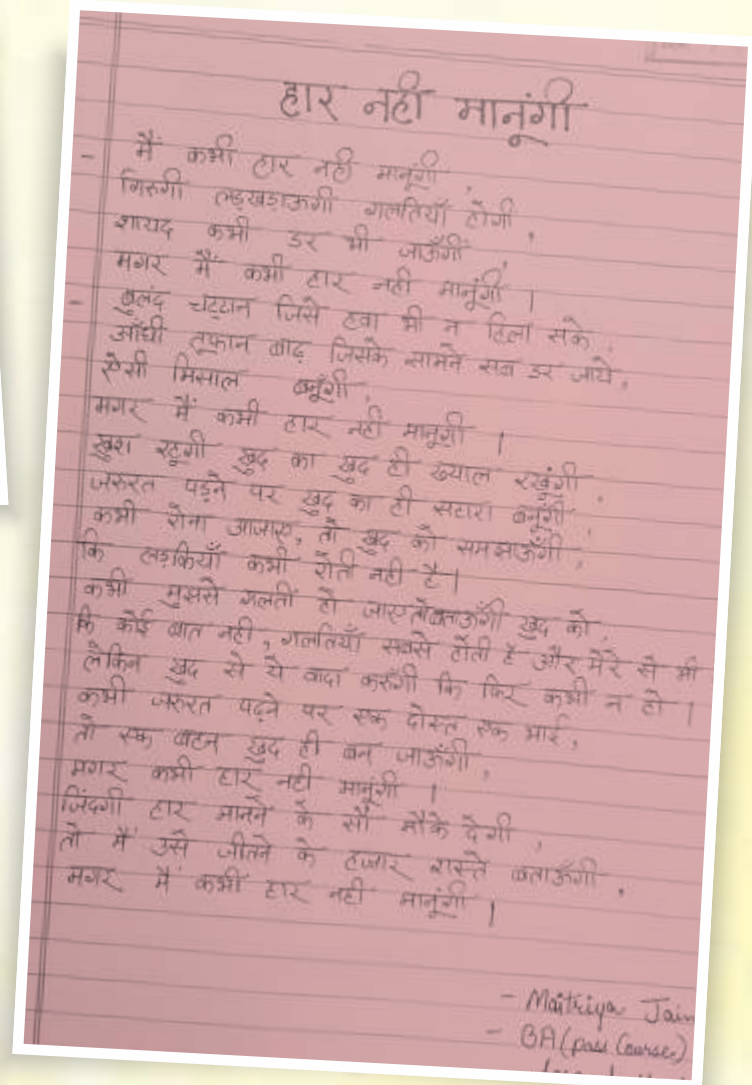 हार नही मानूंगी
- मैं कभी हार नही मानूंगी,
गिरुगी लड़खड़ाऊगी गलतियाँ होगी,
शायद कभी डर भी जाऊँगी,
मगर मैं कभी हार नही मानूंगी ।
- बुलंद चट्टान जिसे हवा भी न हिला सके,
आँधी तूफान बाढ़ जिसके सामने सब डर जाये,
ऐसी मिसाल बनूंगी,
मगर मैं कभी हार नही मानूगी ।
खुश रहूगी खुद का खुद ही ख्याल रखूंगी,
जरुरत पड़ने पर खुद का ही सहारा बनूगी,
कभी रोना आजाए, तो खुद को समझाऊँगी,
कि लड़कियाँ कभी रोती नही है।
कभी मुझसे गलती हो जाए तो बताऊँगी खुद को,
कि कोई बात नही, गलतियाँ सबसे होती है और मेरे से भी
लेकिन खुद से ये वादा करुँगी कि फिर कभी न हो ।
कभी जरुरत पढ़ने पर एक दोस्त एक भाई,
तो एक बहन खुद ही बन जाऊँगी,
मगर कभी हार नही मानूंगी ।
जिंदगी हार मानने के सौ मौके देगी,
तो मैं उसे जीतने के हजार रास्ते बताऊँगी,
मगर मैं कभी हार नही मानूंगी ।
- Maitriya Jain
- BA (pass Course)